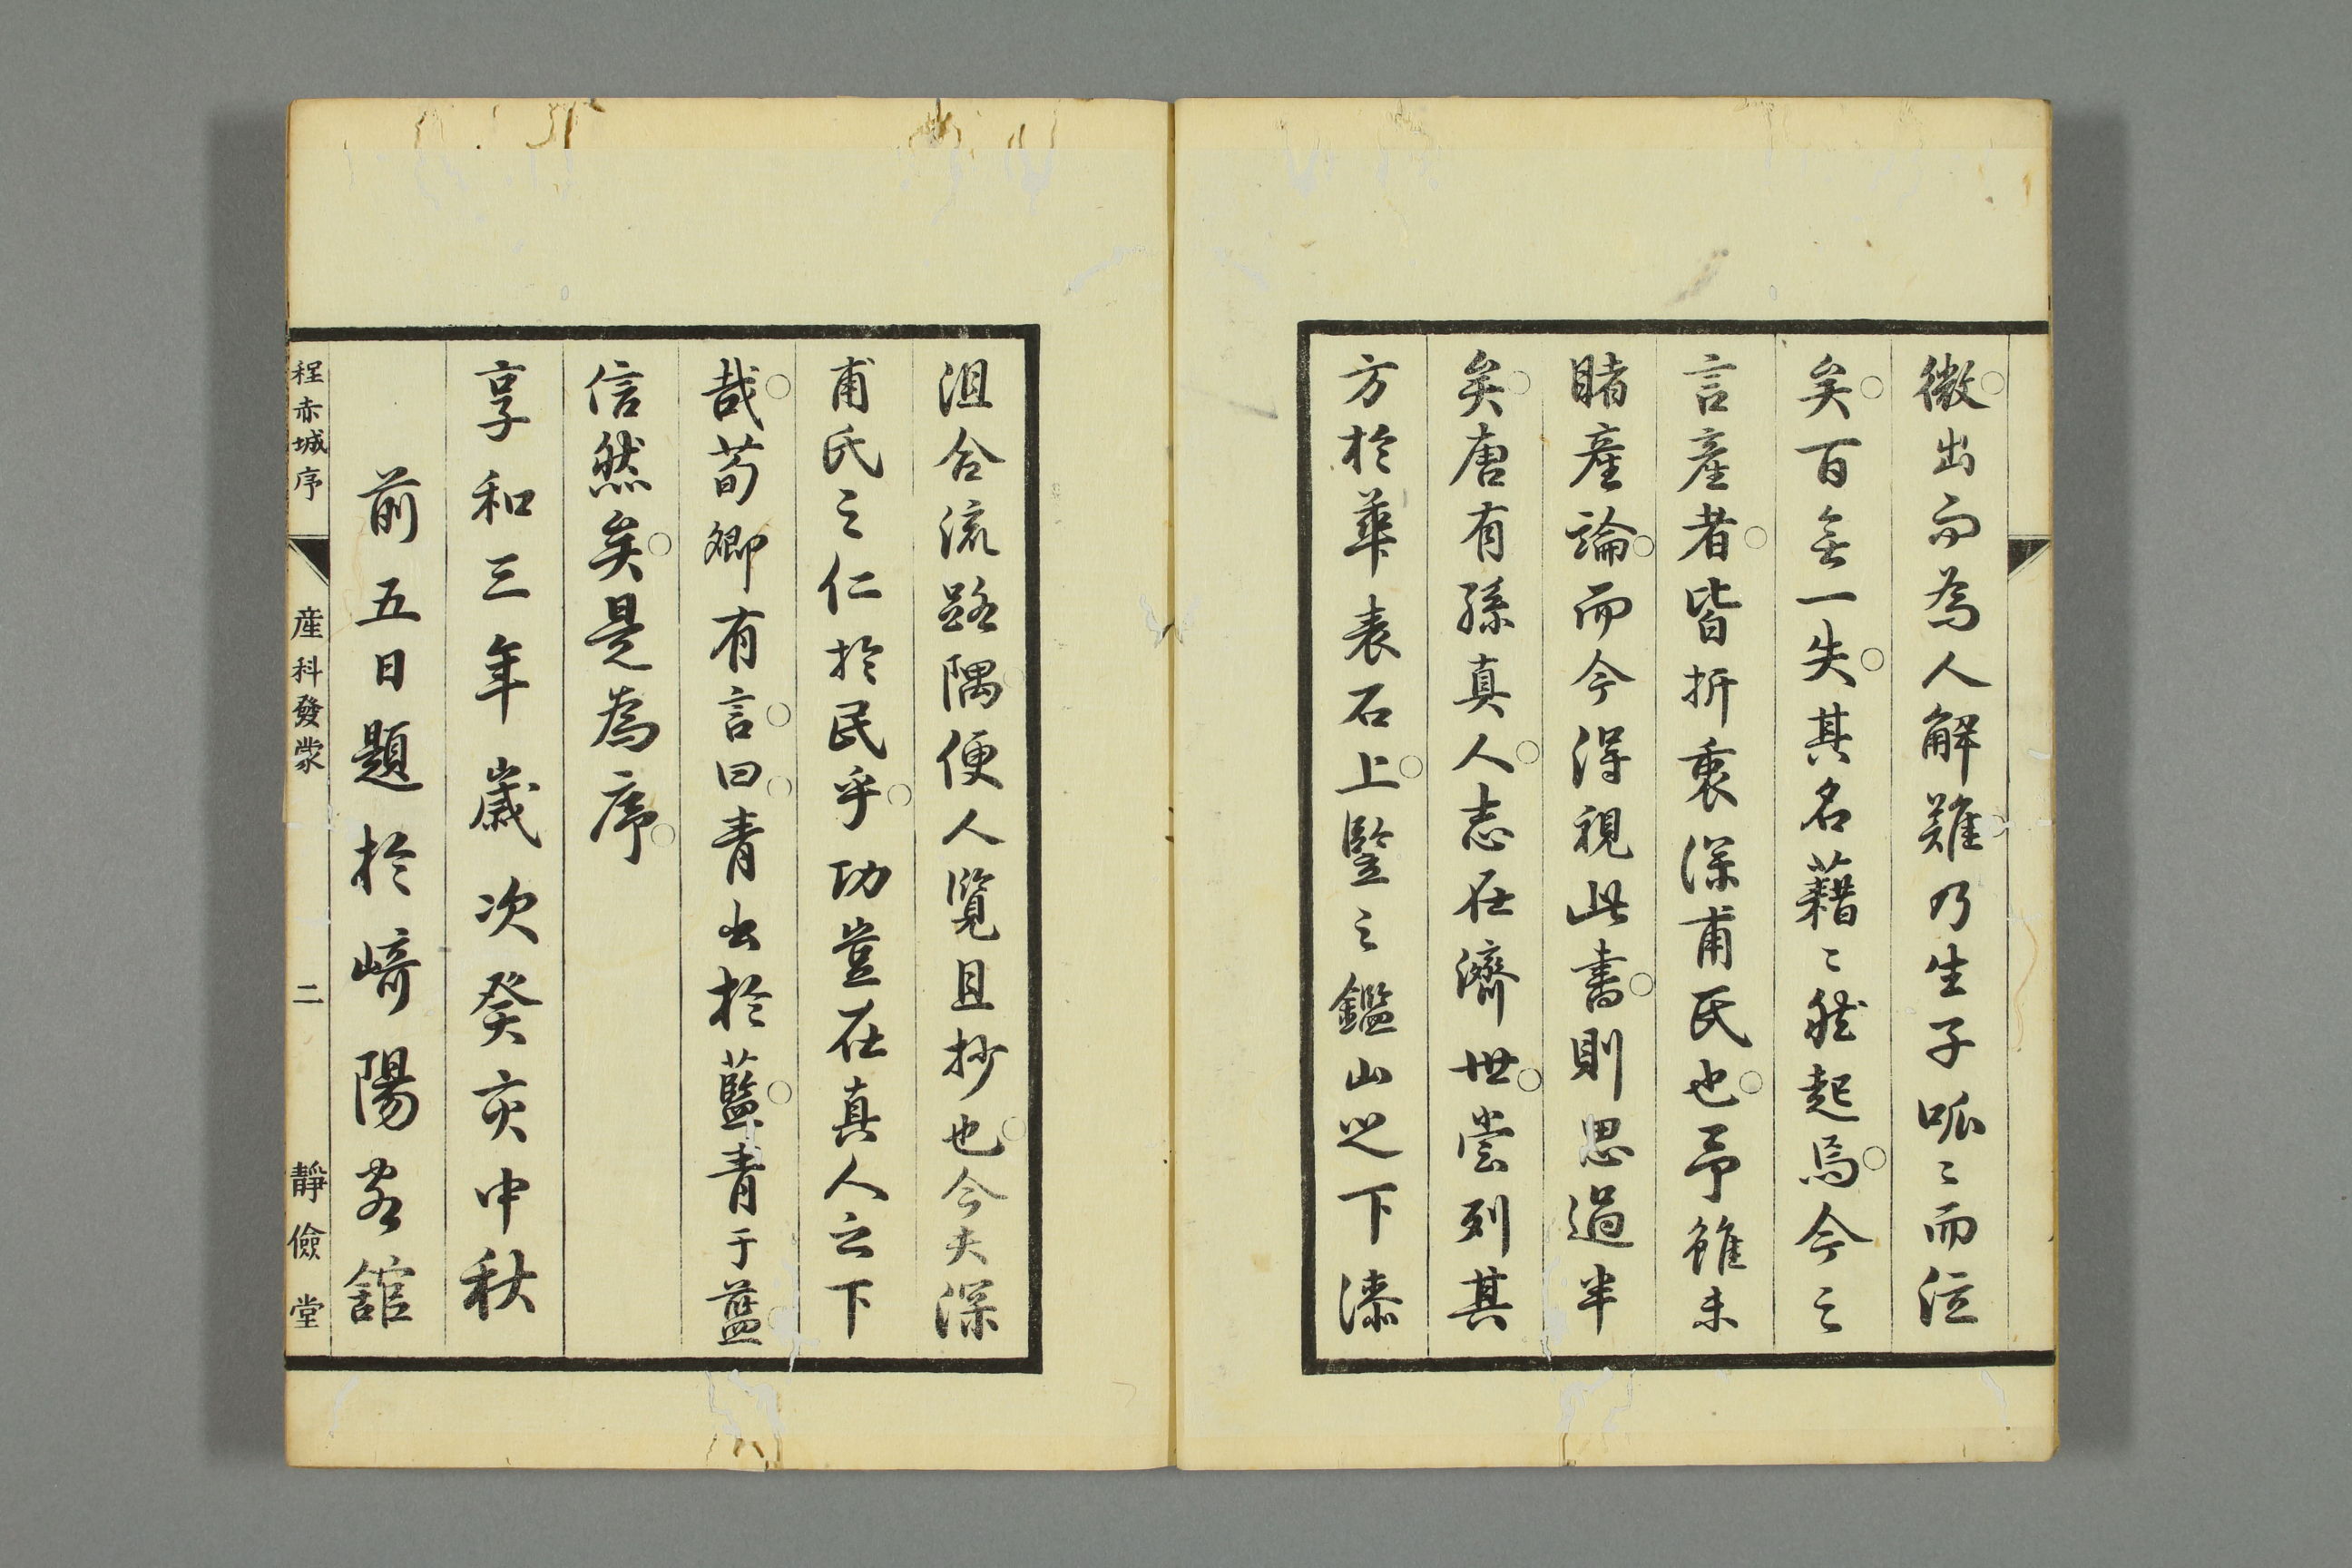 微出而為人解難乃生子呱〻而泣
矣百無一失其名藉〻然起焉今之
言産者皆折衷深甫氏也予雖未
睹産論而今得視此書則思過半
矣唐有孫真人志在濟世嘗列其
方於華表石上竪之鑑山之下漆
沮合流路隅便人覽且抄也今夫深
甫氏之仁於民乎功豈在真人之下
哉荀卿有言曰青出於藍青于藍
信然矣是為序
享和三年歲次癸亥中秋
前五日題於﨑陽客舘
程赤城序 産科發蒙 二 靜儉堂